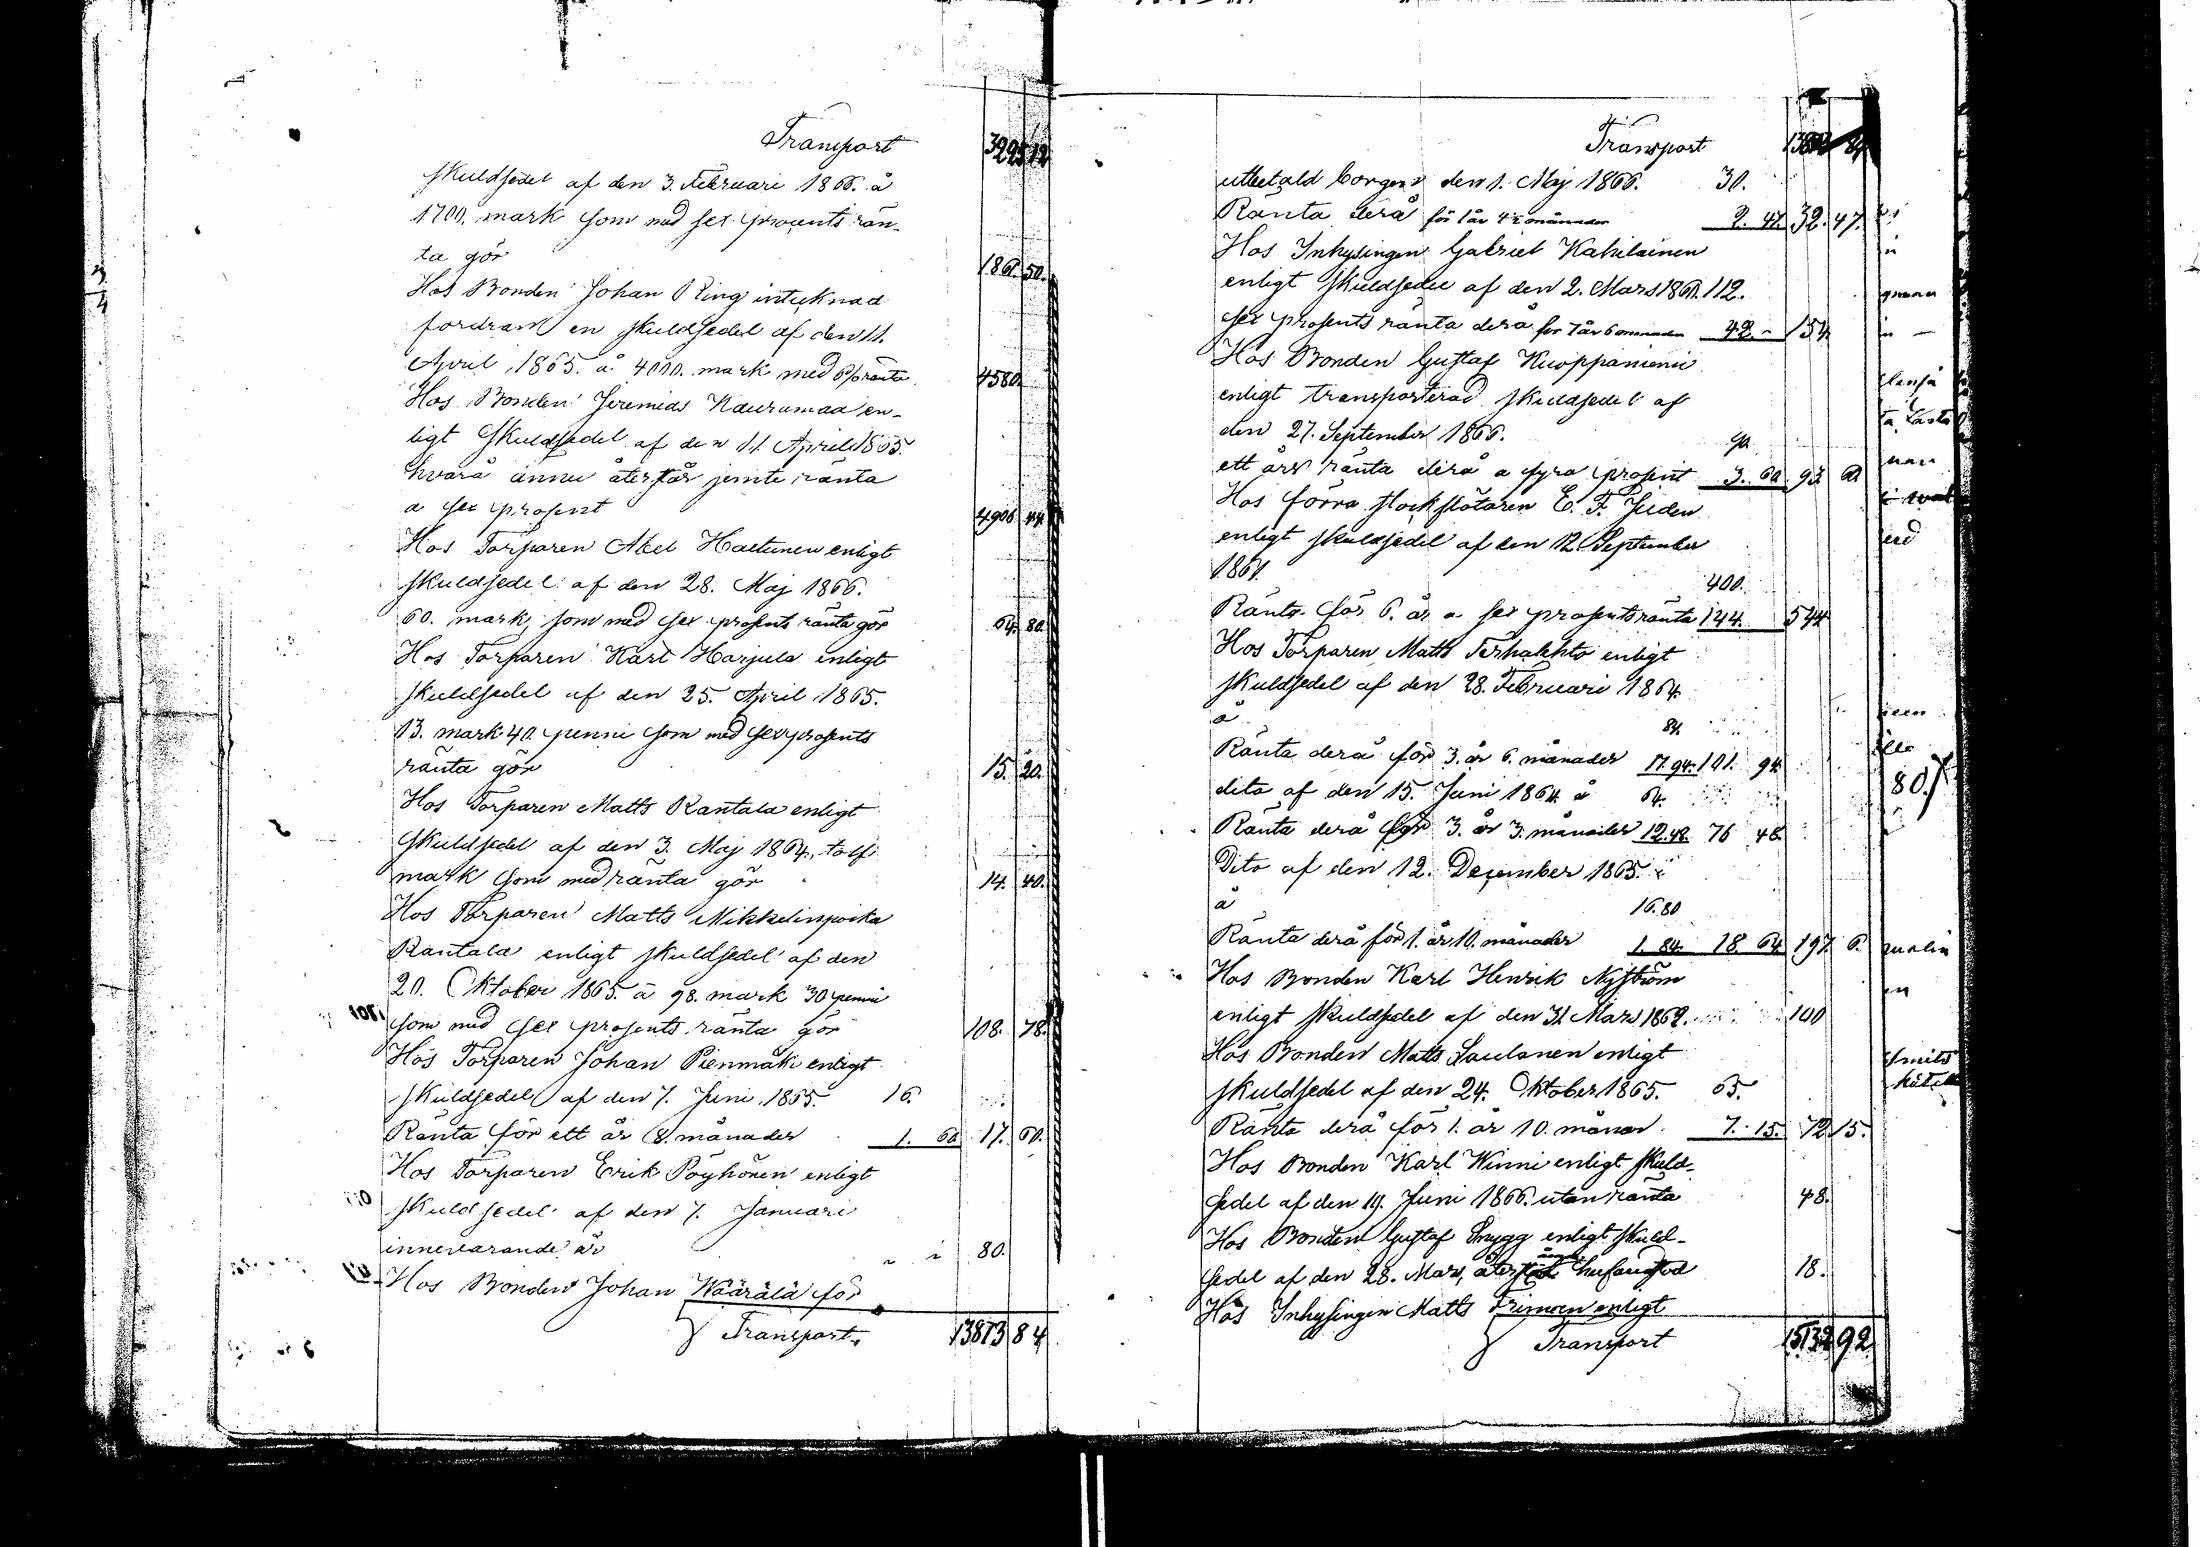 Transport 3295 12
skuldsedel af den 3. Februari 1866. å
1700. mark som med sex procents rän-
ta gör 1861. 50.
Hos Bonden Johan Ring intecknad
fordran en skuldsedel af den 11.
April 1865. å 4000. mark med 6% ränta 4580.
Hos Bonden Jeremias Naurumaa en-
ligt Skuldsedel af den 11. April 1865.
hvarå ännu återstår jemte ränta
a sex prosent 4906 44.
Hos Torparen Abel Haetunen enligt
skuldsedel af den 28. Maj 1866.
60. mark, som med sex prosents ränta gör 64. 80.
Hos Torparen Karl Harjula enligt
skuldsedel af den 25. April 1865.
13. mark 40 penni som med sex prosents
ränta gör 15. 20.
Hos Torparen Matts Rantala enligt
Skuldsedel af den 3. Maj 1864, tolf
mark som med ränta gör 14. 40.
Hos Torparen Matts Mikkelinpoika
Rantala enligt skuldsedel af den
20. Oktober 1865. å 98. mark 30 penni
som med sex prosents ränta gör 108. 78.
Hos Torparen Johan Pienmäki enligt
skuldsedel af den 7. Juni 1865. 16.
Ränta för ett år 8. månader 1. 60 17. 60.
Hos Torparen Erik Pöyhönen enligt
skuldsedel af den 7. Januari
innevarande år 80.
Hos Bonden Johan Wäärälä för
Transport 13813 84
Transport 13813 84
utbetald borgen den 1. Maj 1866. 30.
Ränta derå för 1 år 4½ månader 2. 47. 32. 47.
Hos Inhysingen Gabriel Kakilainen
enligt skuldsedel af den 2. Mars 1860. 112.
sex prosents ränta derå för 7 år 6 månader 42. 154.
Hos Bonden Gustaf Kuoppaniemi
enligt transporterad skuldsedel af
den 27. September 1866. 90.
ett års ränta derå a fyra prosent 3. 60 93 60
Hos förra stockflötaren E. F. Juden
enligt skuldsedel af den 12. September
1861. 400.
Ränta för 6. år a sex prosents ränta 144. 544
Hos Torparen Matts Terhalahto enligt
skuldsedel af den 28. Februari 1864.
å 84.
Ränta derå för 3. år 6. månader 17. 94. 101. 94.
dito af den 15. Juni 1864. å 64.
Ränta derå för 3. år 3. månader 12. 48. 76 48.
Dito af den 12. December 1865.
å 16. 80
Ränta derå för 1. år 10. månader 1. 84. 18 64 197. 6.
Hos Bonden Karl Henrik Nyström
enligt skuldsedel af den 31. Mars 1862. 100
Hos Bonden Matts Saulanen enligt
skuldsedel af den 24. Oktober 1865. 65.
Ränta derå för 1. år 10. månar 7. 15. 72 15.
Hos Bonden Karl Winni enligt skuld-
sedel af den 19. Juni 1866. utan ränta 48.
Hos Bonden Gustaf Snygg enligt skuld-
sedel af den 28. Mars, 18.
Hos Inhysingen Matts Frimoen enligt
Transport 15132 92